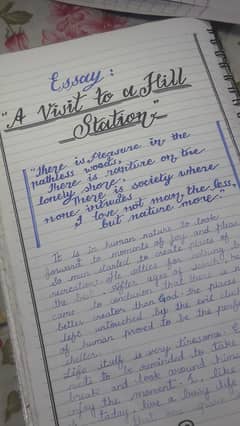 Essay:
"A Visit to a Hill
Station"
"There is pleasure in the
pathless woods,
There is rapture on the
lonely shore.
There is society where
none intrudes
I love not man the less,
but nature more."
It is in human nature to look
forward to moments of joy and
So man started to create places of
recreation. He
the best. After ages of
came to conclusion that
better creator than God. the places
left untouched by the
of human proved to be the
shelter.
Life itself is very tiresome.
needs to be reminded to take
break and look around him
enjoy the moment. I, like
today, live a busy life